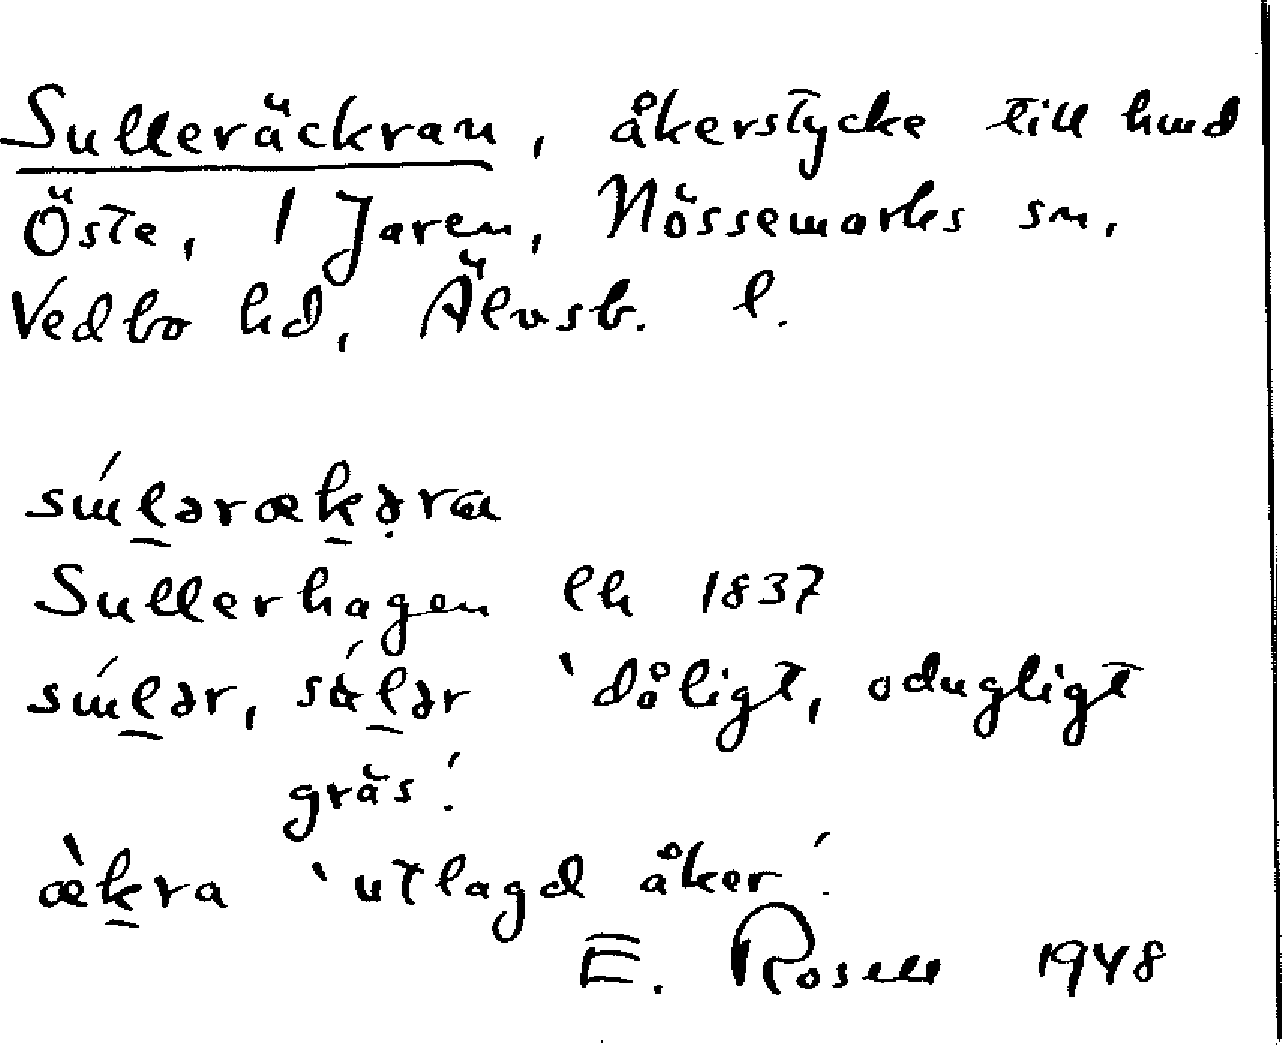 Sulleräckran, åkerstycke till hmd
Öste, 1 Jaren, Nössemarks sn,
Vedbo hd, Älvsb. l.
sɯ́l̲əræk̲ə̣ra
Sullerhagen lh 1837
sɯ́l̲ər, sál̲ər ‵dåligt, odugligt
gräs′.
æ̀k̲ra ‵utlagd åker′.
E. Rosell 1948